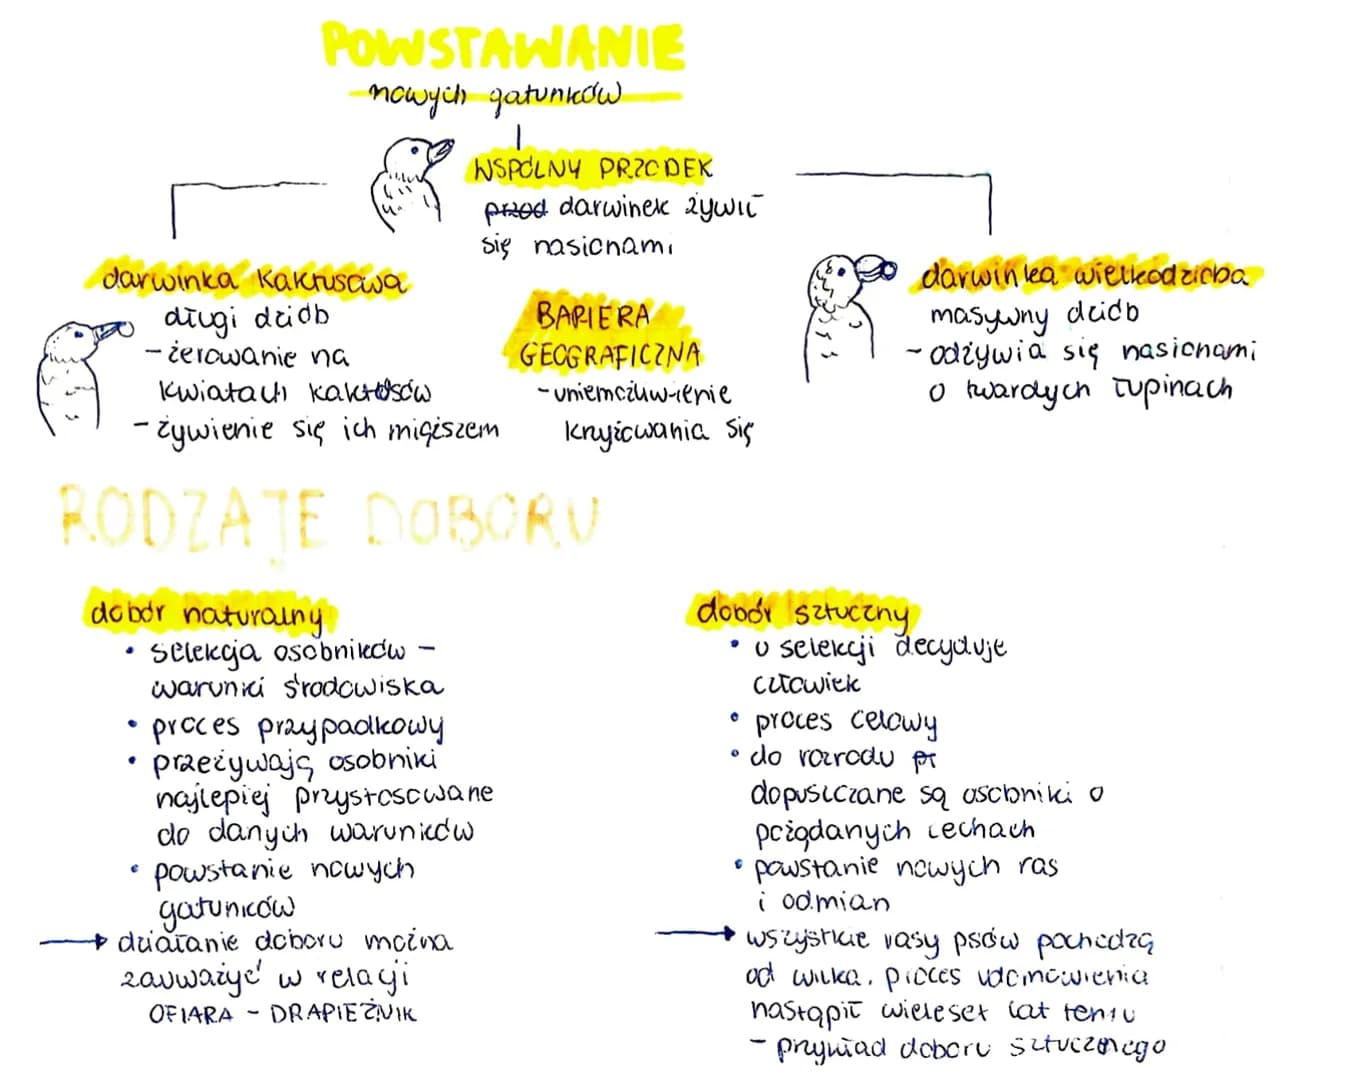 POWSTAWANIE
nowych gatunków
WSPÓLNY PRZODEK
przod darwinek żywił
się nasionami
darwinka kaktusowa
długi dziób
- żerowanie na
kwiatach kaktusów
- żywienie się ich miąższem
BARIERA
GEOGRAFICZNA
- uniemożliwienie
krzyżowania się
darwinka wielkodzioba
masywny dziób
- odżywia się nasionami
o twardych łupinach
RODZAJE DOBORU
dobór naturalny
• selekcja osobników -
warunki środowiska
• proces przypadkowy
• przeżywają osobniki
najlepiej przystosowane
do danych warunków
• powstanie nowych
gatunków
→ działanie doboru można
zauważyć w relacji
OFIARA - DRAPIEŻNIK
dobór sztuczny
• o selekcji decyduje
człowiek
• proces celowy
• do rozrodu pr
dopuszczane są osobniki o
pożądanych cechach
• powstanie nowych ras
i odmian
→ wszystkie rasy psów pochodzą
od wilka. proces udomowienia
nastąpił wieleset lat temu
- przykład doboru sztucznego